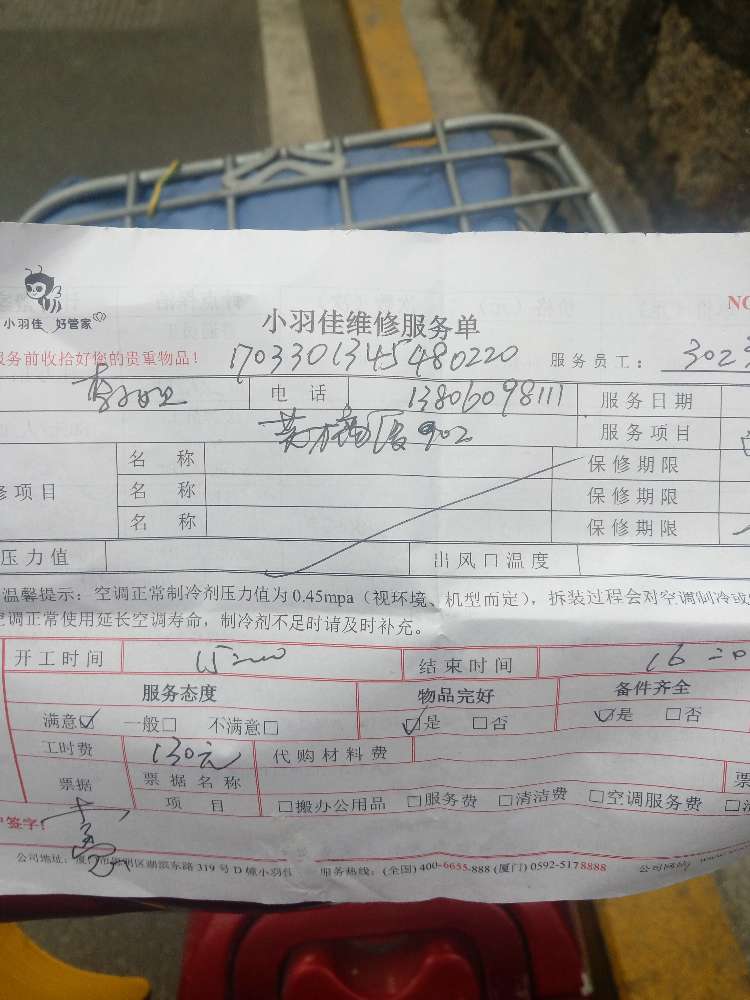 NO
小羽佳 好管家
小羽佳维修服务单
服务前收拾好您的贵重物品! 1703301345480220 服务员工: 3023
电话 13806098111 服务日期
902 服务项目
名称 保修期限
修项目 名称 保修期限
名称 保修期限
压力值 出风口温度
温馨提示: 空调正常制冷剂压力值为0.45mpa (视环境、机型而定), 拆装过程会对空调制冷或
空调正常使用延长空调寿命, 制冷剂不足时请及时补充。
开工时间 15:00 结束时间 16:20
服务态度 物品完好 备件齐全
满意☑ 一般□ 不满意□ ☑是 □否 ☑是 □否
工时费 130元 代购材料费
票据 票据名称 票
项目 □搬办公用品 □服务费 □清洁费 □空调服务费 □
户签字!
公司地址: 厦门市 区湖滨东路319号D幢小羽佳 服务热线: (全国) 400-6655-888 (厦门) 0592-5178888 公司网站